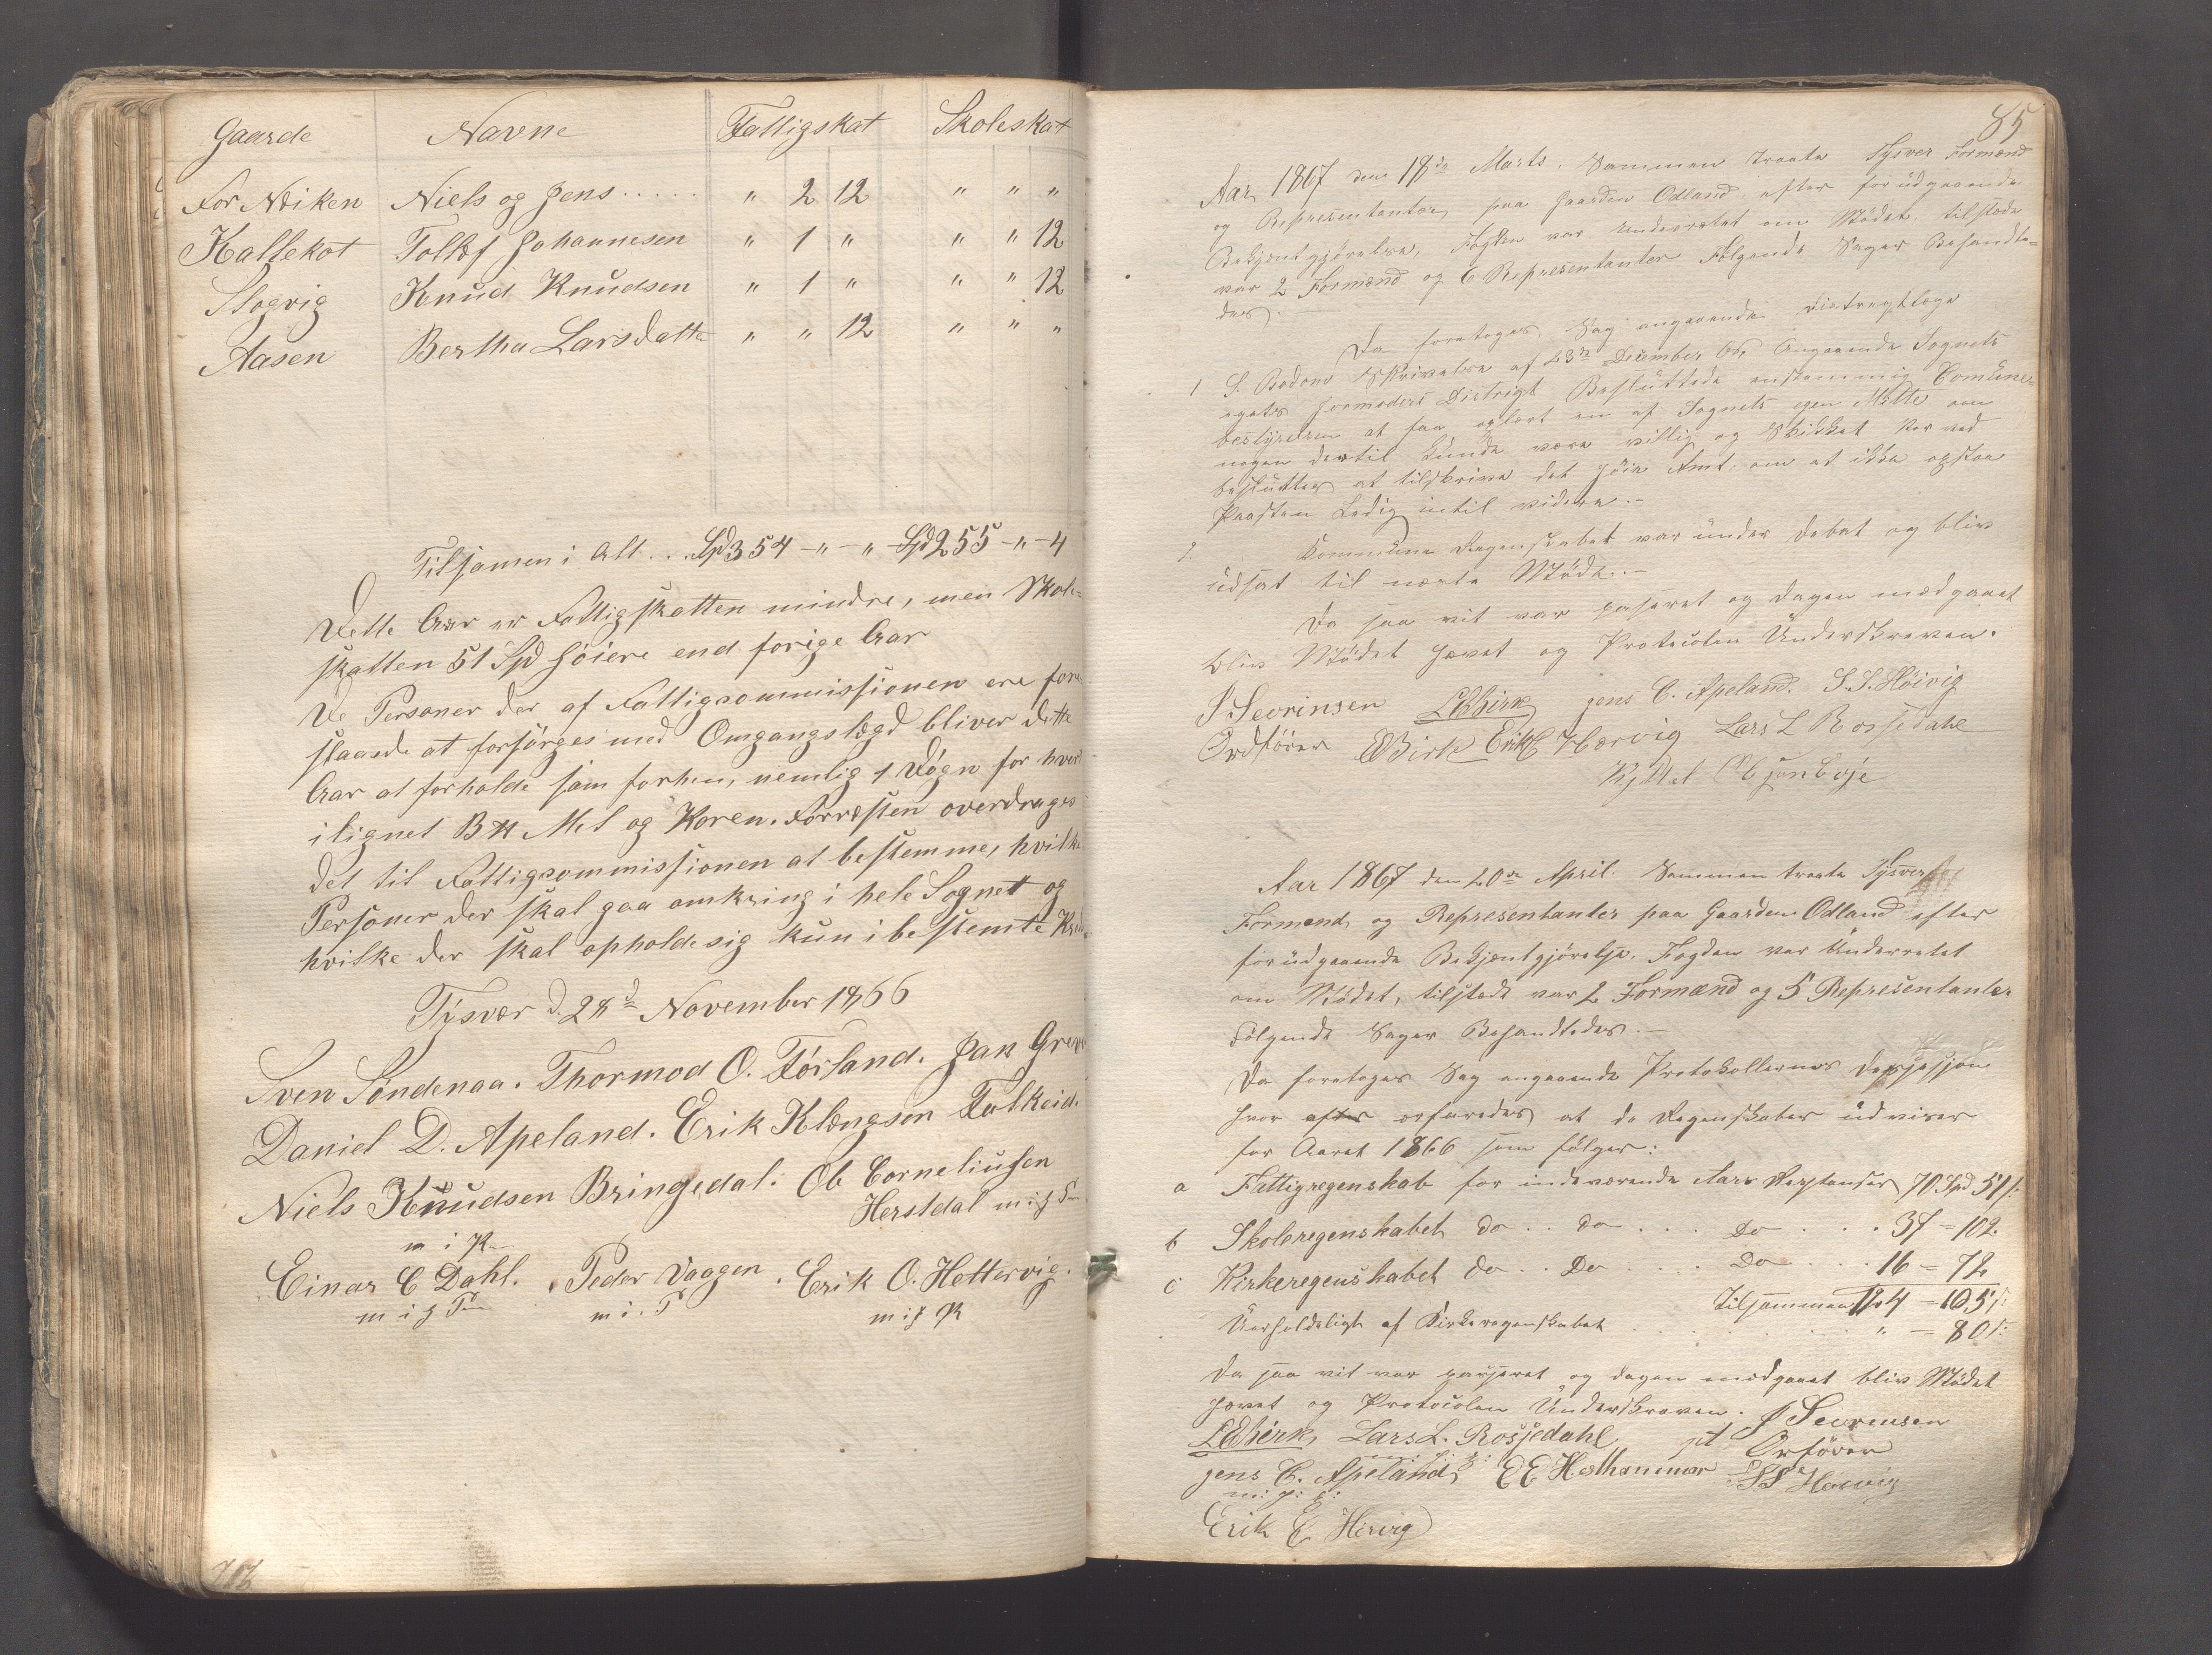 Gaarde Navne Fattigskat Skoleskat
For Nöiken Niels og Jens . . . . . " 2 12 " " "
Kallekot Tollef Johannesen " 1 " " " 12
Slogvig Knud Knudsen " 1 " " " 12
Aasen Bertha Larsdatter " " 12 " " "
Tilsamen i Alt . . . Spd 354 - " - " Spd 255 - " - 4
Dette Aar er Fattigskatten mindre, men Skole-
skatten 51 Spd höiere end forige Aar
De Personer der af Fattigcommissionen ere fore
slaaede at forsörges med Omgangslægd bliver dette
Aar at forholde som forhen, nemlig 1 Dögn for hvert
ilignet Mel og Koren. Forresten overdrages
det til Fattigcommissionen at bestemme, hvilke
Personer der skal gaa omkring i hele Sognet og
hvilke der skal opholde sig kun i bestemte
Tysvær d. 28de November 1866
Sven Söndenaa. Thormod O. Förland. Jan
Daniel D. Apeland. Erik Klængsen Falkeid.
Niels Knudsen Bringedal. Ole Corneliussen
Herstdal m i f P
m i P
Einar C Dahl. Peder Vaagen. Erik O. Hettervig.
m i f P m i P m i f P
85
Aar 1867 den 18de Marts. Sammen traate Tysver Formænd
og Representanter paa Gaarden Odland efter forudgaaende
Bekjentgjörelse, Fogden var Underretet om Mödet. tilstede
var 2 Formænd og 6 Representanter Fölgende Sager Behandle-
des. —
Da foretoges Sag angaaende Distrigtlæge
1 S. Skrivelse af 23de December Angaaende Sognets
Jormoders Distrigt Besluttede enstemmig Comune-
bestyrelsen at faa oplært en af Sognets egen Mötte om
nogen dertil kunde være villig og Skikket
besluttes at tilskrive det Höie Amt. om at ikke opslaa
Posten Ledig intil videre. —
2 Kommune Regenskabet var under debat og bliv
udsat til næste Möde. —
Da saa vit var paseret og dagen medgaaet
bliv Mödet hævet og Protocolen Underskreven.
S Sevrinsen LBBirk jens C. Apeland. S. S. Höivig
Ordförer EBirk Erik E Hervig Lars L Rossedahl
Aar 1867 den 20de April. Sammen traate Tysver
Formænd og Representanter paa Gaarden Odland efter
forudgaaende Bekjentgjörelse. Fogden var Underretet
om Mödet, tilstede var 2 Formænd og 5 Representanter
Fölgende Sager Behandledes. —
Da foretoges Sag angaaende Protokollernes
hvor efter erfaredes at de Regenskaber udviser
for Aaret 1866 som fölger:
a Fattigregenskab for indeværende Aars Restanser 70. Spd 51 s:
b Skoleregenskabet do . . do . . . Do . . . . 37 = 102.
c Kirkeregenskabet do . . Do . . . . Do . . . . 16 = 72
Tilsammen 124 = 105 s:
Uerholdeligt af Kirkeregenskabet . . . . . . " = 80 s:
Da saa vit var passeret og dagen medgaaet bliv Mödet
hævet og Protocolen Underskreven. S Sevrinsen
LBBirk, Lars L. Rossedahl pt Orförer
jens C. Apeland EE Hesthammer SS Höivig
m: p: f:
Erik E Hervig